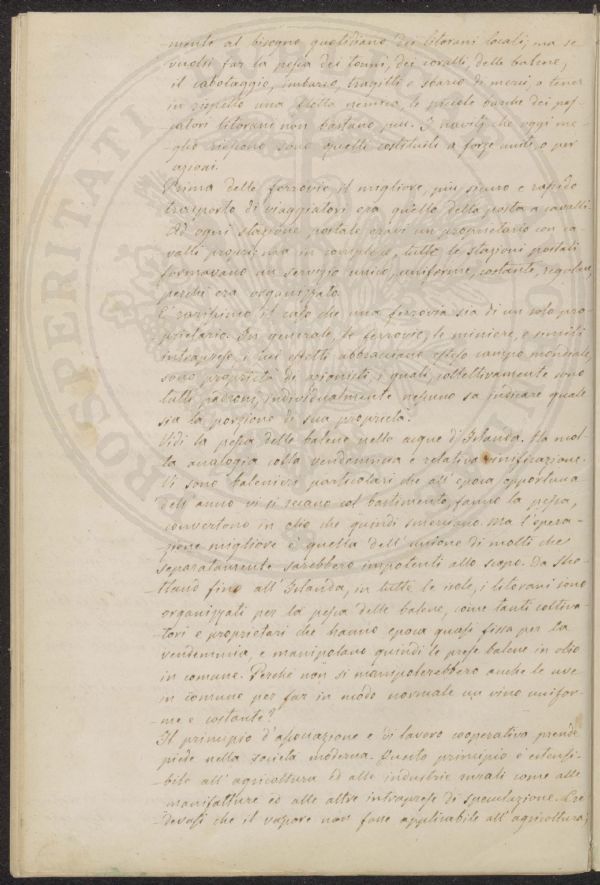 mente al bisogno quotidiano dei litorani locali; ma se
vuolsi far la pesca dei tonni, dei coralli, delle balene,
il cabotaggio, imbarco, tragitti e sbarco di merci, o tener
in rispetto una flotta nemica, le piccole barche dei pes-
-catori litorani non bastano più. I navili che oggi me-
-glio riescono sono quelli costituiti a forze unite, o per
azioni.
Prima delle ferrovie, il migliore, più sicuro e rapido
trasporto di viaggiatori era quello della posta a cavalli.
Ad ogni stazione postale eravi un proprietario con ca-
valli propri; ma in complesso, tutte le stazioni postali
formavano un servizio unico, uniforme, costante, regolare,
perchè era organizzato.
È rarissimo il caso che una ferrovia sia di un solo pro-
prietario. In generale, le ferrovie, le miniere, e simili
intraprese, i cui effetti abbracciano esteso campo mondiale,
sono proprietà di azionisti, i quali collettivamente sono
tutti padroni, individualmente nessuno sa indicare quale
sia la porzione di sua proprietà.
Vidi la pesca delle balene nelle acque d'Irlanda. Ha mol-
ta analogia colla vendemmia e relativa vinificazione.
Vi sono balenieri particolari che all'epoca opportuna
dell'anno vi si recano col bastimento, fanno la pesca,
convertono in olio che quindi smerciano. Ma l'opera-
-zione migliore è quella dell'unione di molti che
separatamente sarebbero impotenti allo scopo. Da Sho-
-tland fino all'Irlanda, in tutte le isole, i litorani sono
organizzati per la pesca delle balene, come tanti coltiva-
-tori e proprietari che hanno epoca quasi fissa per la
vendemmia, e manipolano quindi le prese balene in olio
in comune. Perchè non si manipolerebbero anche le uve
in comune per far in modo normale un vino unifor-
-me e costante?
Il principio d'associazione e di lavoro cooperativo prende
piede nella società moderna. Questo principio è estensi-
-bile all'agricoltura ed alle industrie rurali come alle
manifatture ed alle altre intraprese di speculazione. Cre
devasi che il vapore non fosse applicabile all'agricoltura,
PROSPERITATI